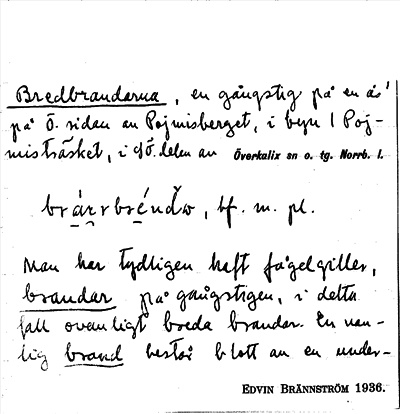 Bredbrandarna, en gångstig på en ås
på Ö. sidan av Pojmisberget, i byn 1 Poj-
misträsket, i NÖ. delen av Överkalix sn o. tg. Norrb. l.
bf. m. pl.
Man har tydligen haft fågelgiller,
brandar på gångstigen, i detta
fall ovanligt breda brandar. En van-
lig brand består blott av en under-
EDVIN BRÄNNSTRÖM 1936.